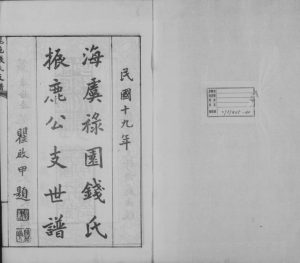 民國十九年
海虞祿園錢氏
振鹿公支世譜
瞿啟甲題